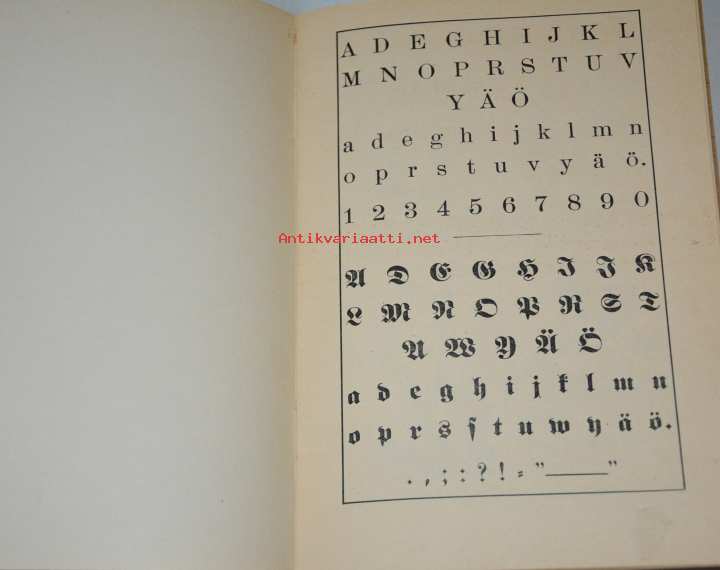 A D E G H I J K L
M N O P R S T U V
Y Ä Ö
a d e g h i j k l m n
o p r s t u v y ä ö.
1 2 3 4 5 6 7 8 9 0
Antikvariaatti.net
A D E G H I J K
L M N O P R S T
U W Y Ä Ö
a d e g h i j k l m n
o p r s ſ t u w y ä ö.
. , ; : ? ! ⸗ " —— "